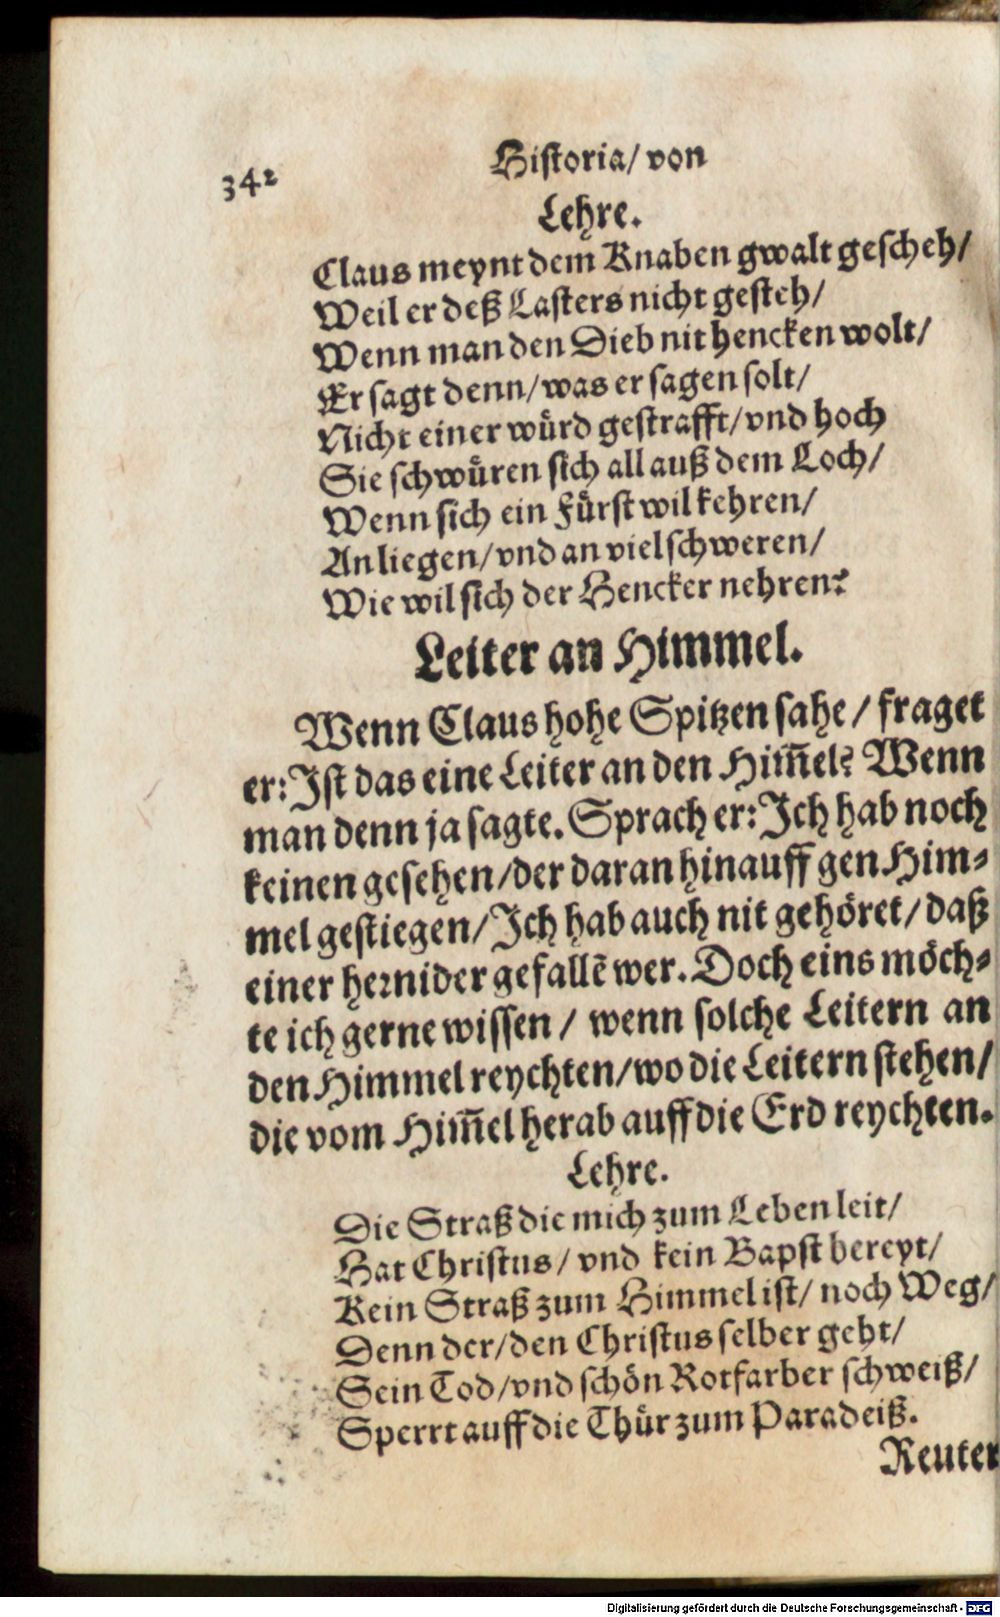 342
Historia/ von
Lehre.
Claus meynt dem Knaben gwalt gescheh/
Weil er deß Lasters nicht gesteh/
Wenn man den Dieb nit hencken wolt/
Er sagt denn/ was er sagen solt/
Nicht einer würd gestrafft/ vnd hoch
Sie schwüren sich all auß dem Loch/
Wenn sich ein Fürst wil kehren/
An liegen/ vnd an viel schweren/
Wie wil sich der Hencker nehren?
Leiter an Himmel.
Wenn Claus hohe Spitzen sahe/ fraget
er: Ist das eine Leiter an den Him̅el? Wenn
man denn ja sagte. Sprach er: Ich hab noch
keinen gesehen/ der daran hinauff gen Him-
mel gestiegen/ Ich hab auch nit gehöret/ daß
einer hernider gefallē wer. Doch eins möch-
te ich gerne wissen/ wenn solche Leitern an
den Himmel reychten/ wo die Leitern stehen/
die vom Him̅el herab auff die Erd reychten.
Lehre.
Die Straß die mich zum Leben leit/
Hat Christus/ vnd kein Bapst bereyt/
Kein Straß zum Himmel ist/ noch Weg/
Denn der/ den Christus selber geht/
Sein Tod/ vnd schön Rotfarber schweiß/
Sperrt auff die Thür zum Paradeiß.
Reuter
Digitalisierung gefördert durch die Deutsche Forschungsgemeinschaft - DFG